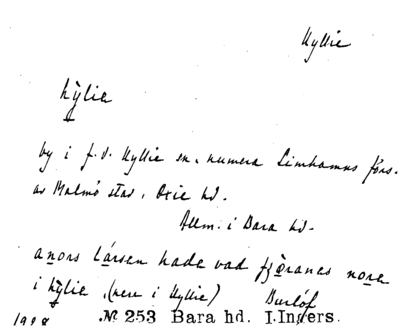 Hyllie
hỳlia
by i f.d. Hyllie sn. numera Limhamns förs.
av Malmö stad, Oxie hd.
Allm. i Bara hd.
anors lársen hade vad fjæranes nore
i hỳlie. (nere i Hyllie) Burlöf
1928 № 253 Bara hd. I. Ingers.